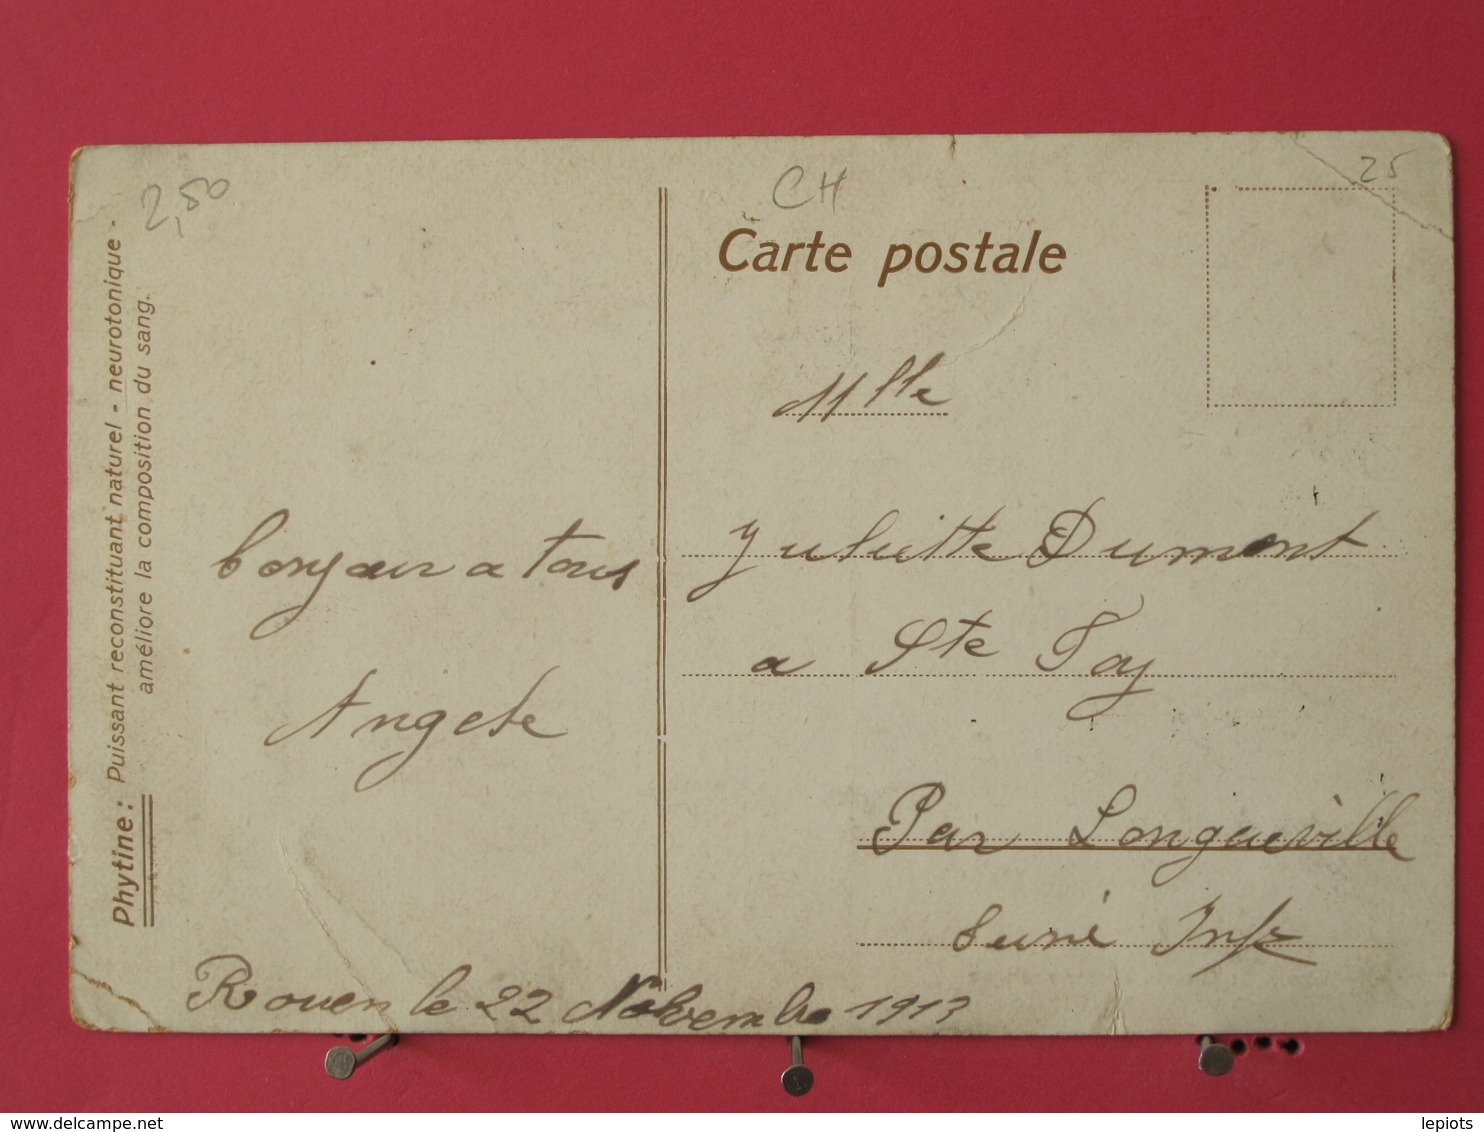 2,50
CH
25
Carte postale
Phytine: Puissant reconstituant naturel - neurotonique -
améliore la composition du sang.
bonjour a tous
Angele
Rouen le 22 Novembre 1913
Mlle
Juliette Dumont
a Ste Foy
Par Longueville
Seine Infre
www.delcampe.net
lepiots